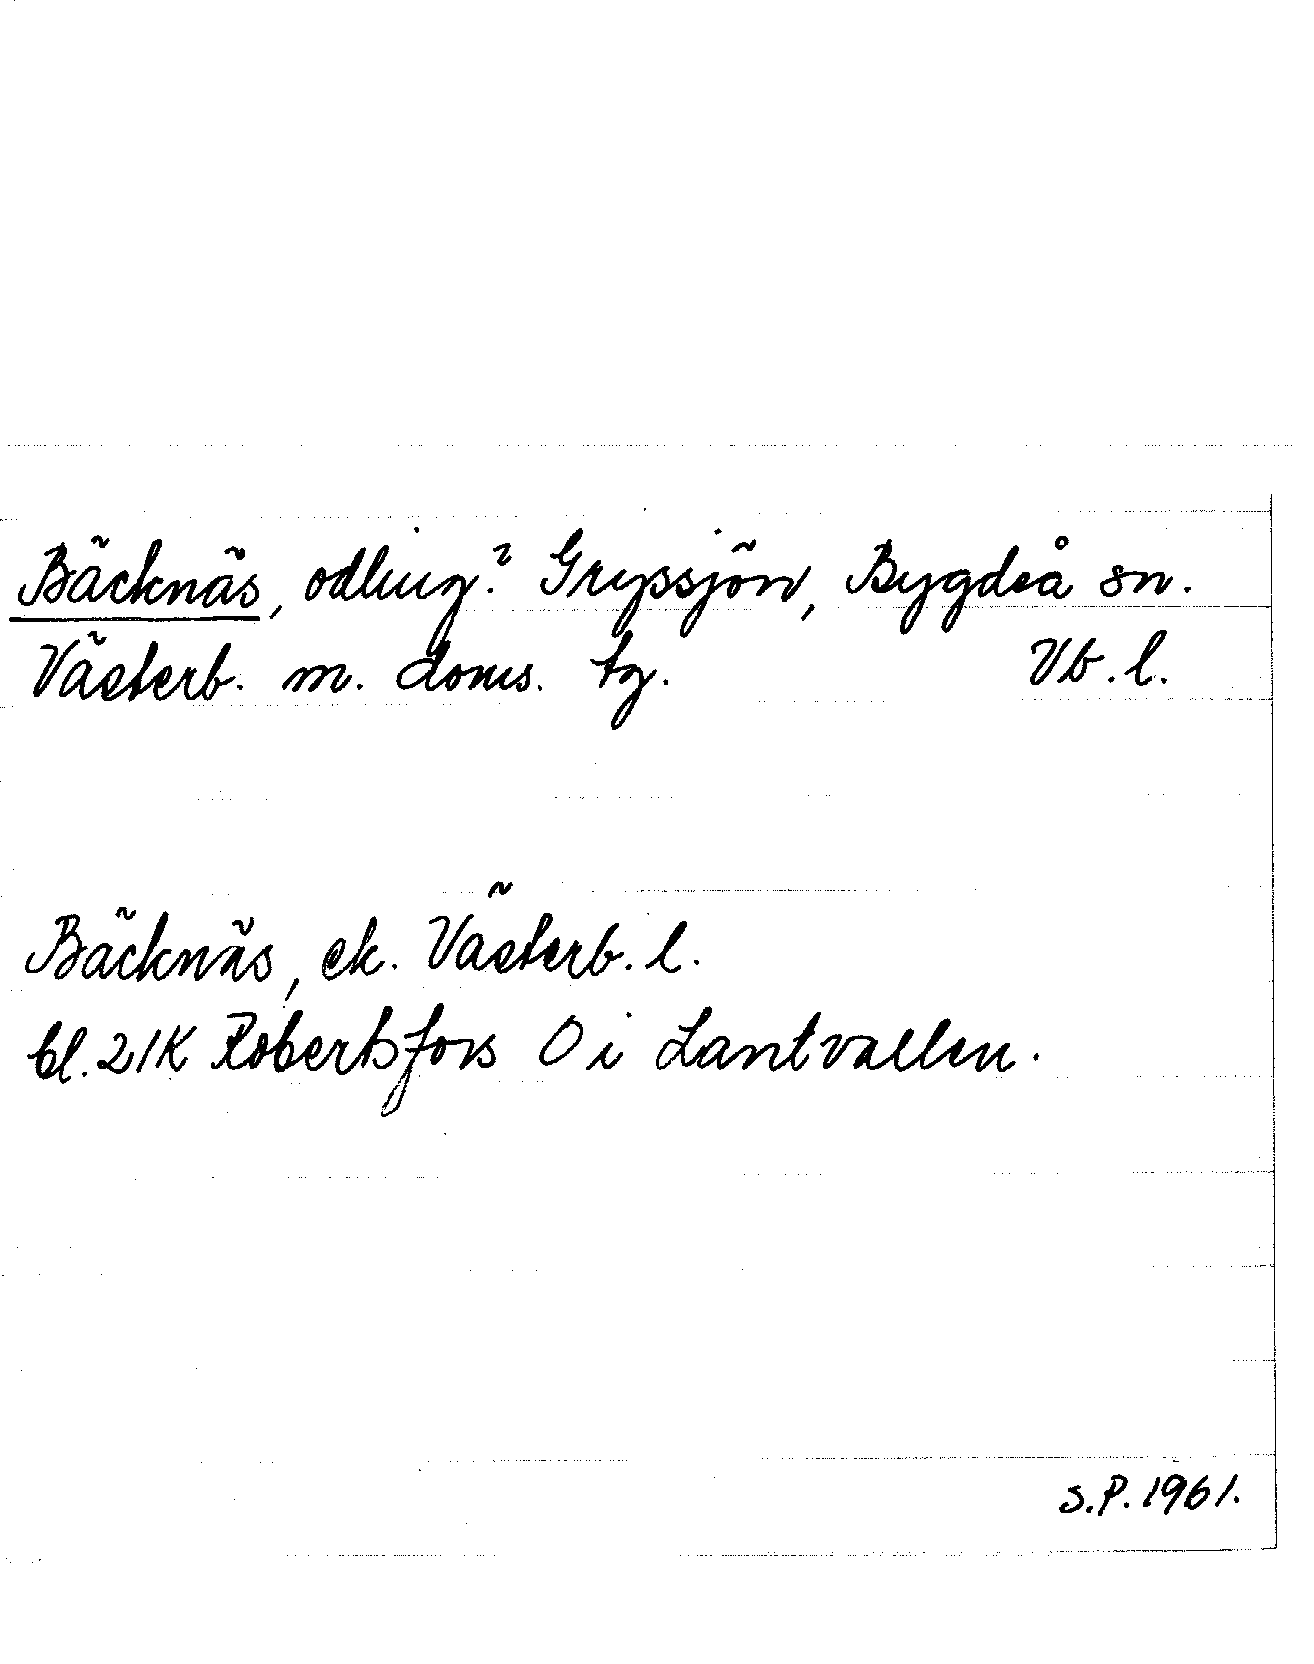 Bäcknäs, odling? Gryssjön, Bygdeå sn.
Västerb. m. doms. tg. Vb. l.
Bäcknäs, ek. Västerb. l.
bl. 21K Robertsfors O i Lantvallen.
S.P. 1961.